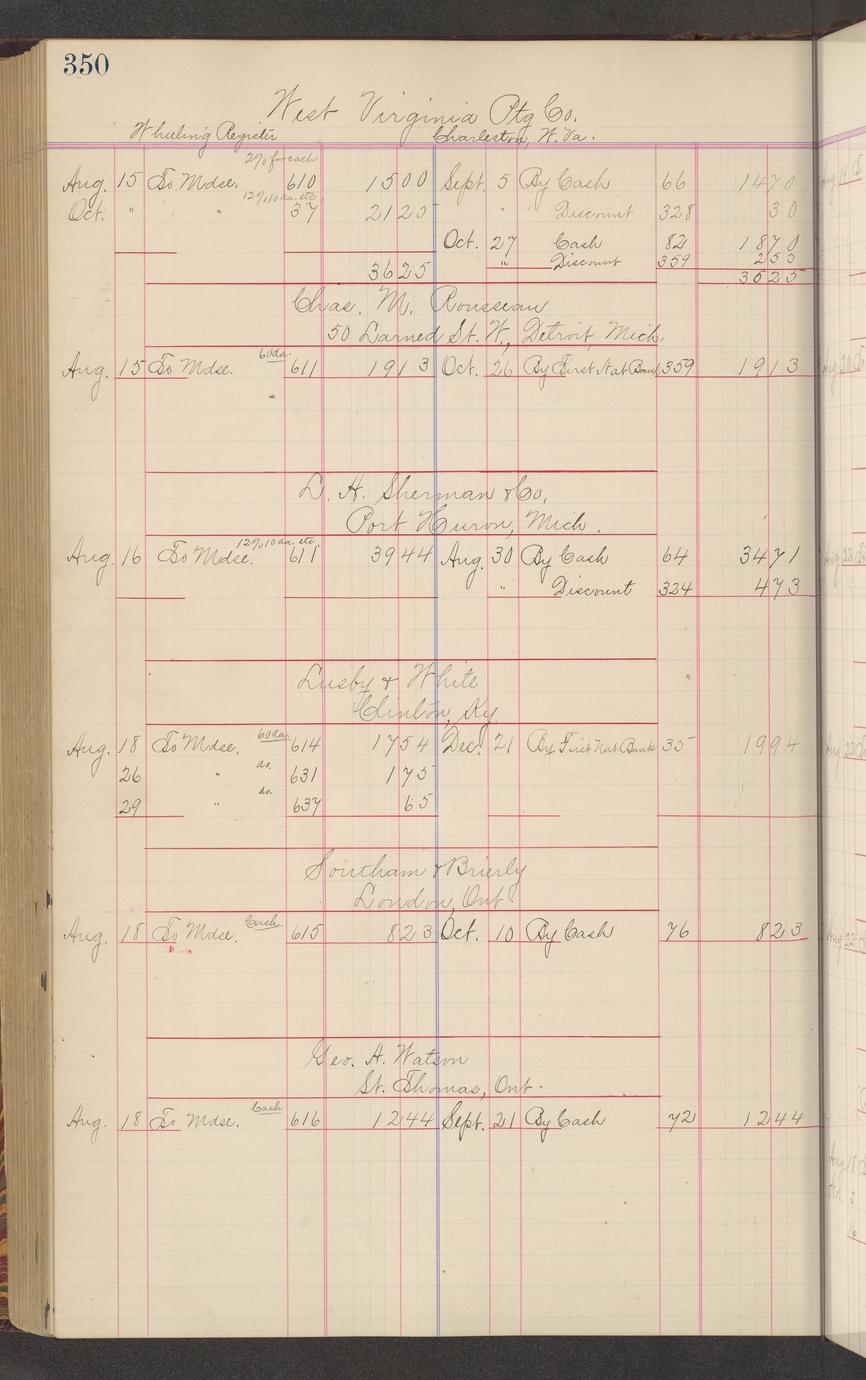 350
West Virginia Ptg. Co.
Wheeling Register Charleston, W. Va.
2% for cash
Aug. 15 To Mdse. 610 1500 Sept. 5 By Cash 66 1470
12% 10 da. etc.
Oct. " " 37 2125 " Discount 328 30
Oct. 27 Cash 82 1870
" Discount 359 255
3625 3625
Chas. M. Rousseau
50 Larned St. W., Detroit, Mich.
60 da.
Aug. 15 To Mdse. 611 1913 Oct. 26 By First Nat Bank 359 1913
L. H. Sherman & Co.,
Port Huron, Mich.
12% 10 da. etc.
Aug. 16 To Mdse. 611 3944 Aug. 30 By Cash 64 3471
" Discount 324 473
Lusby & White
Clinton, Ky.
60 da.
Aug. 18 To Mdse. 614 1754 Dec. 21 By First Nat Bank 35 1994
do.
26 " 631 175
do.
29 " 637 65
Southam & Brierly
London, Ont.
Cash
Aug. 18 To Mdse. 615 823 Oct. 10 By Cash 76 823
Geo. A. Watson
St. Thomas, Ont.
Cash
Aug. 18 To Mdse. 616 1244 Sept. 21 By Cash 72 1244